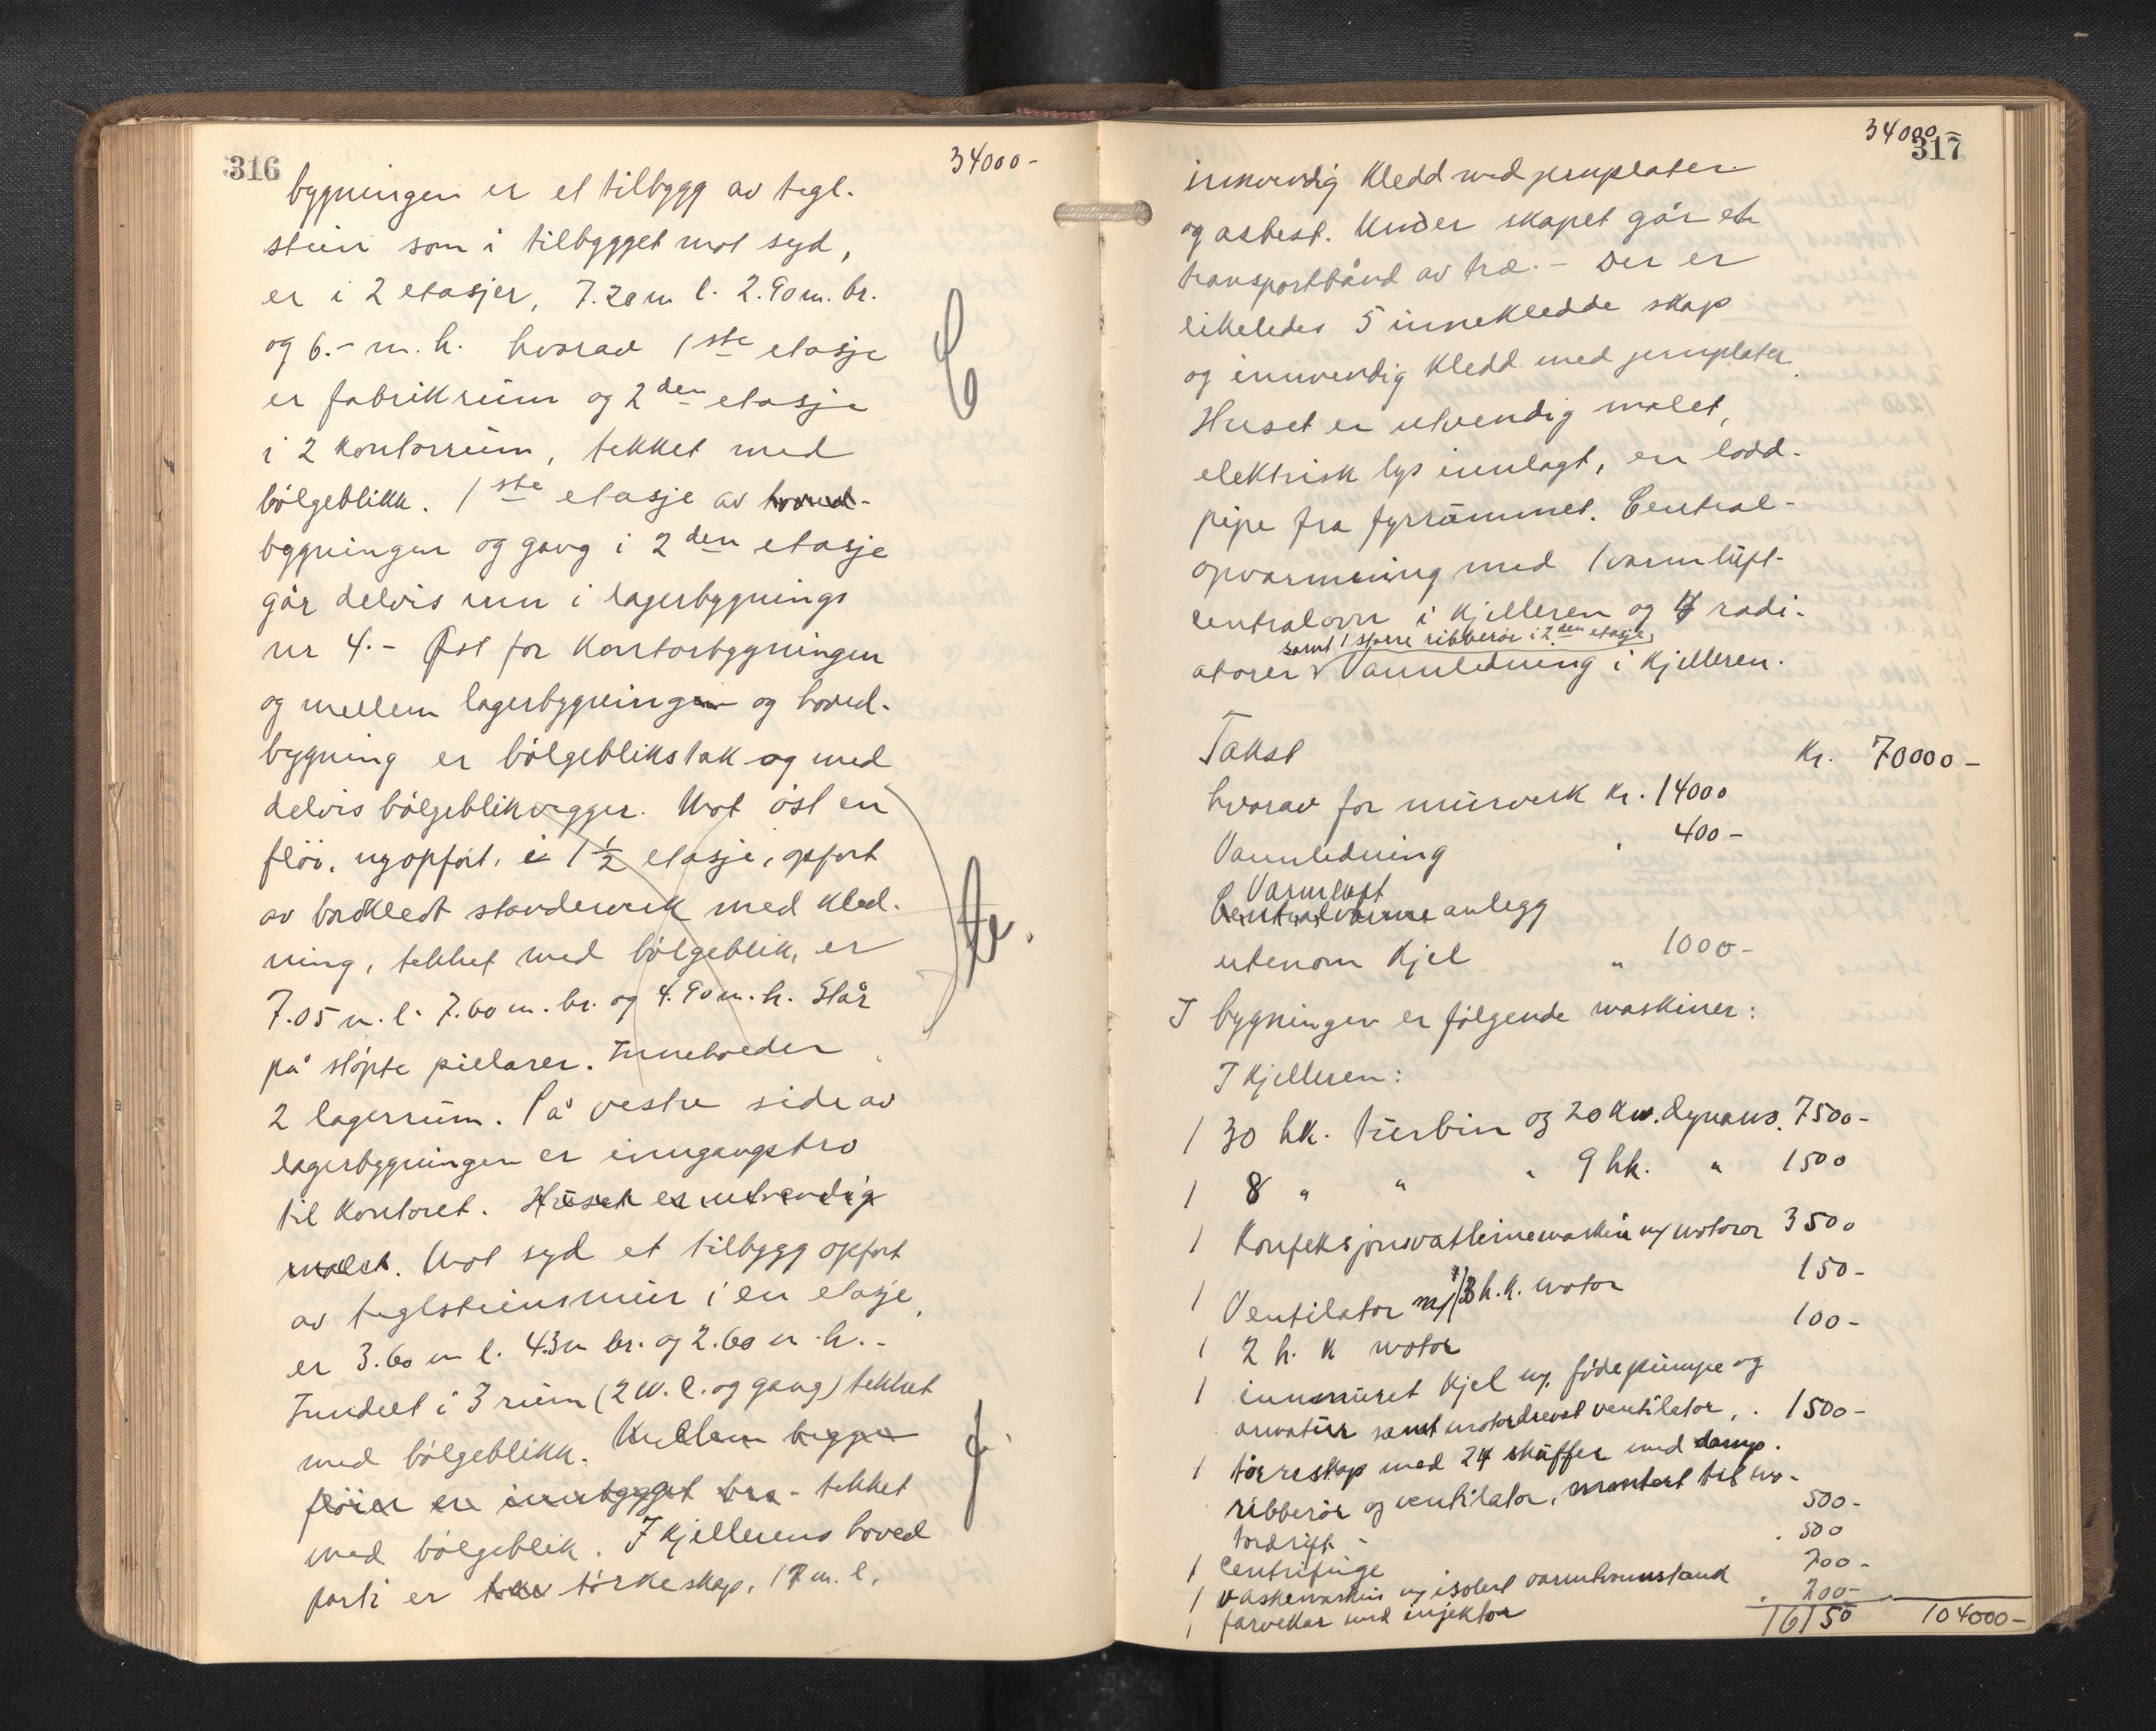 316
34000-
bygningen er et tilbygg av tegl-
stein som i tilbygget mot syd,
er i 2 etasjer, 7.20 m l. 2.90 m. br.
og 6.- m. h. hvorav 1ste etasje
er fabrikrum og 2den etasje
i 2 kontorrum, tekket med
bølgeblikk. 1ste etasje av hoved-
bygningen og gang i 2den etasje
går delvis inn i lagerbygnings
nr 4.- Øst for kontorbygningen
og mellem lagerbygningen og hoved-
bygning er bølgeblikstak og med
delvis bølgeblikvegger. Mot øst en
fløi, nyopført, i 1 1/2 etasje, opført
av bordkledt stenderverk med kled-
ning, tekket med bølgeblik, er
7.05 m. l. 7.60 m. br. og 4.90 m. h. Står
på støpte pielarer. Inneholder
2 lagerrum. På vestre side av
lagerbygningen er inngangsbro
til kontoret. Huset er utvendig
malet. Mot syd et tilbygg opført
av teglsteinsmur i en etasje,
er 3.60 m l. 4.3 m br. og 2.60 m. h.-
Inndelt i 3 rum (2 W.C. og gang) tekket
med bølgeblikk. Mellem begge
fløier er innbygget bro - tekket
med bølgeblik. I kjellerens hoved
parti er tørkeskap, 17 m. l.
34000-
317
innvendig kledd med jernplater
og asbest. Under skapet går et
transportbånd av træ.- Der er
likeledes 5 innekledde skap
og innvendig kledd med jernplater.
Huset er utvendig malet,
elektrisk lys innlagt, en lodd-
pipe fra fyrrummet. Central-
opvarmning med 1 varmluft-
centralovn i kjelleren og 4 radi-
samt 1 større ribberør i 2den etasje,
atorer Vannledning i kjelleren.
Takst Kr. 70000-
hvorav for murverk Kr. 14000
Vannledning " 400-
Varmluft
Centralvarme anlegg
utenom kjel " 1000-
I bygningen er følgende maskiner:
I kjelleren:
1 30 hk. turbin og 20 Kw. dynamo. 7500-
1 8 " " " 9 hk. " 1500
1 Konfeksjonsvatlinemaskin m/ motorer 3500
1 Ventilator m/ 1/3 h.k. motor 150-
1 2 h. k motor 100-
1 innmuret kjel m/. fødepumpe og
armatur samt motordrevet ventilator, . 1500-
1 tørreskap med 24 skuffer med damp-
ribberør og ventilator, montert til mo-
tordrift - 500-
1 Centrifuge . 500
1 vaskemaskin m/ isolert varmtvannstank 700-
1 farvekar med injektor . 200-
16150 104000-